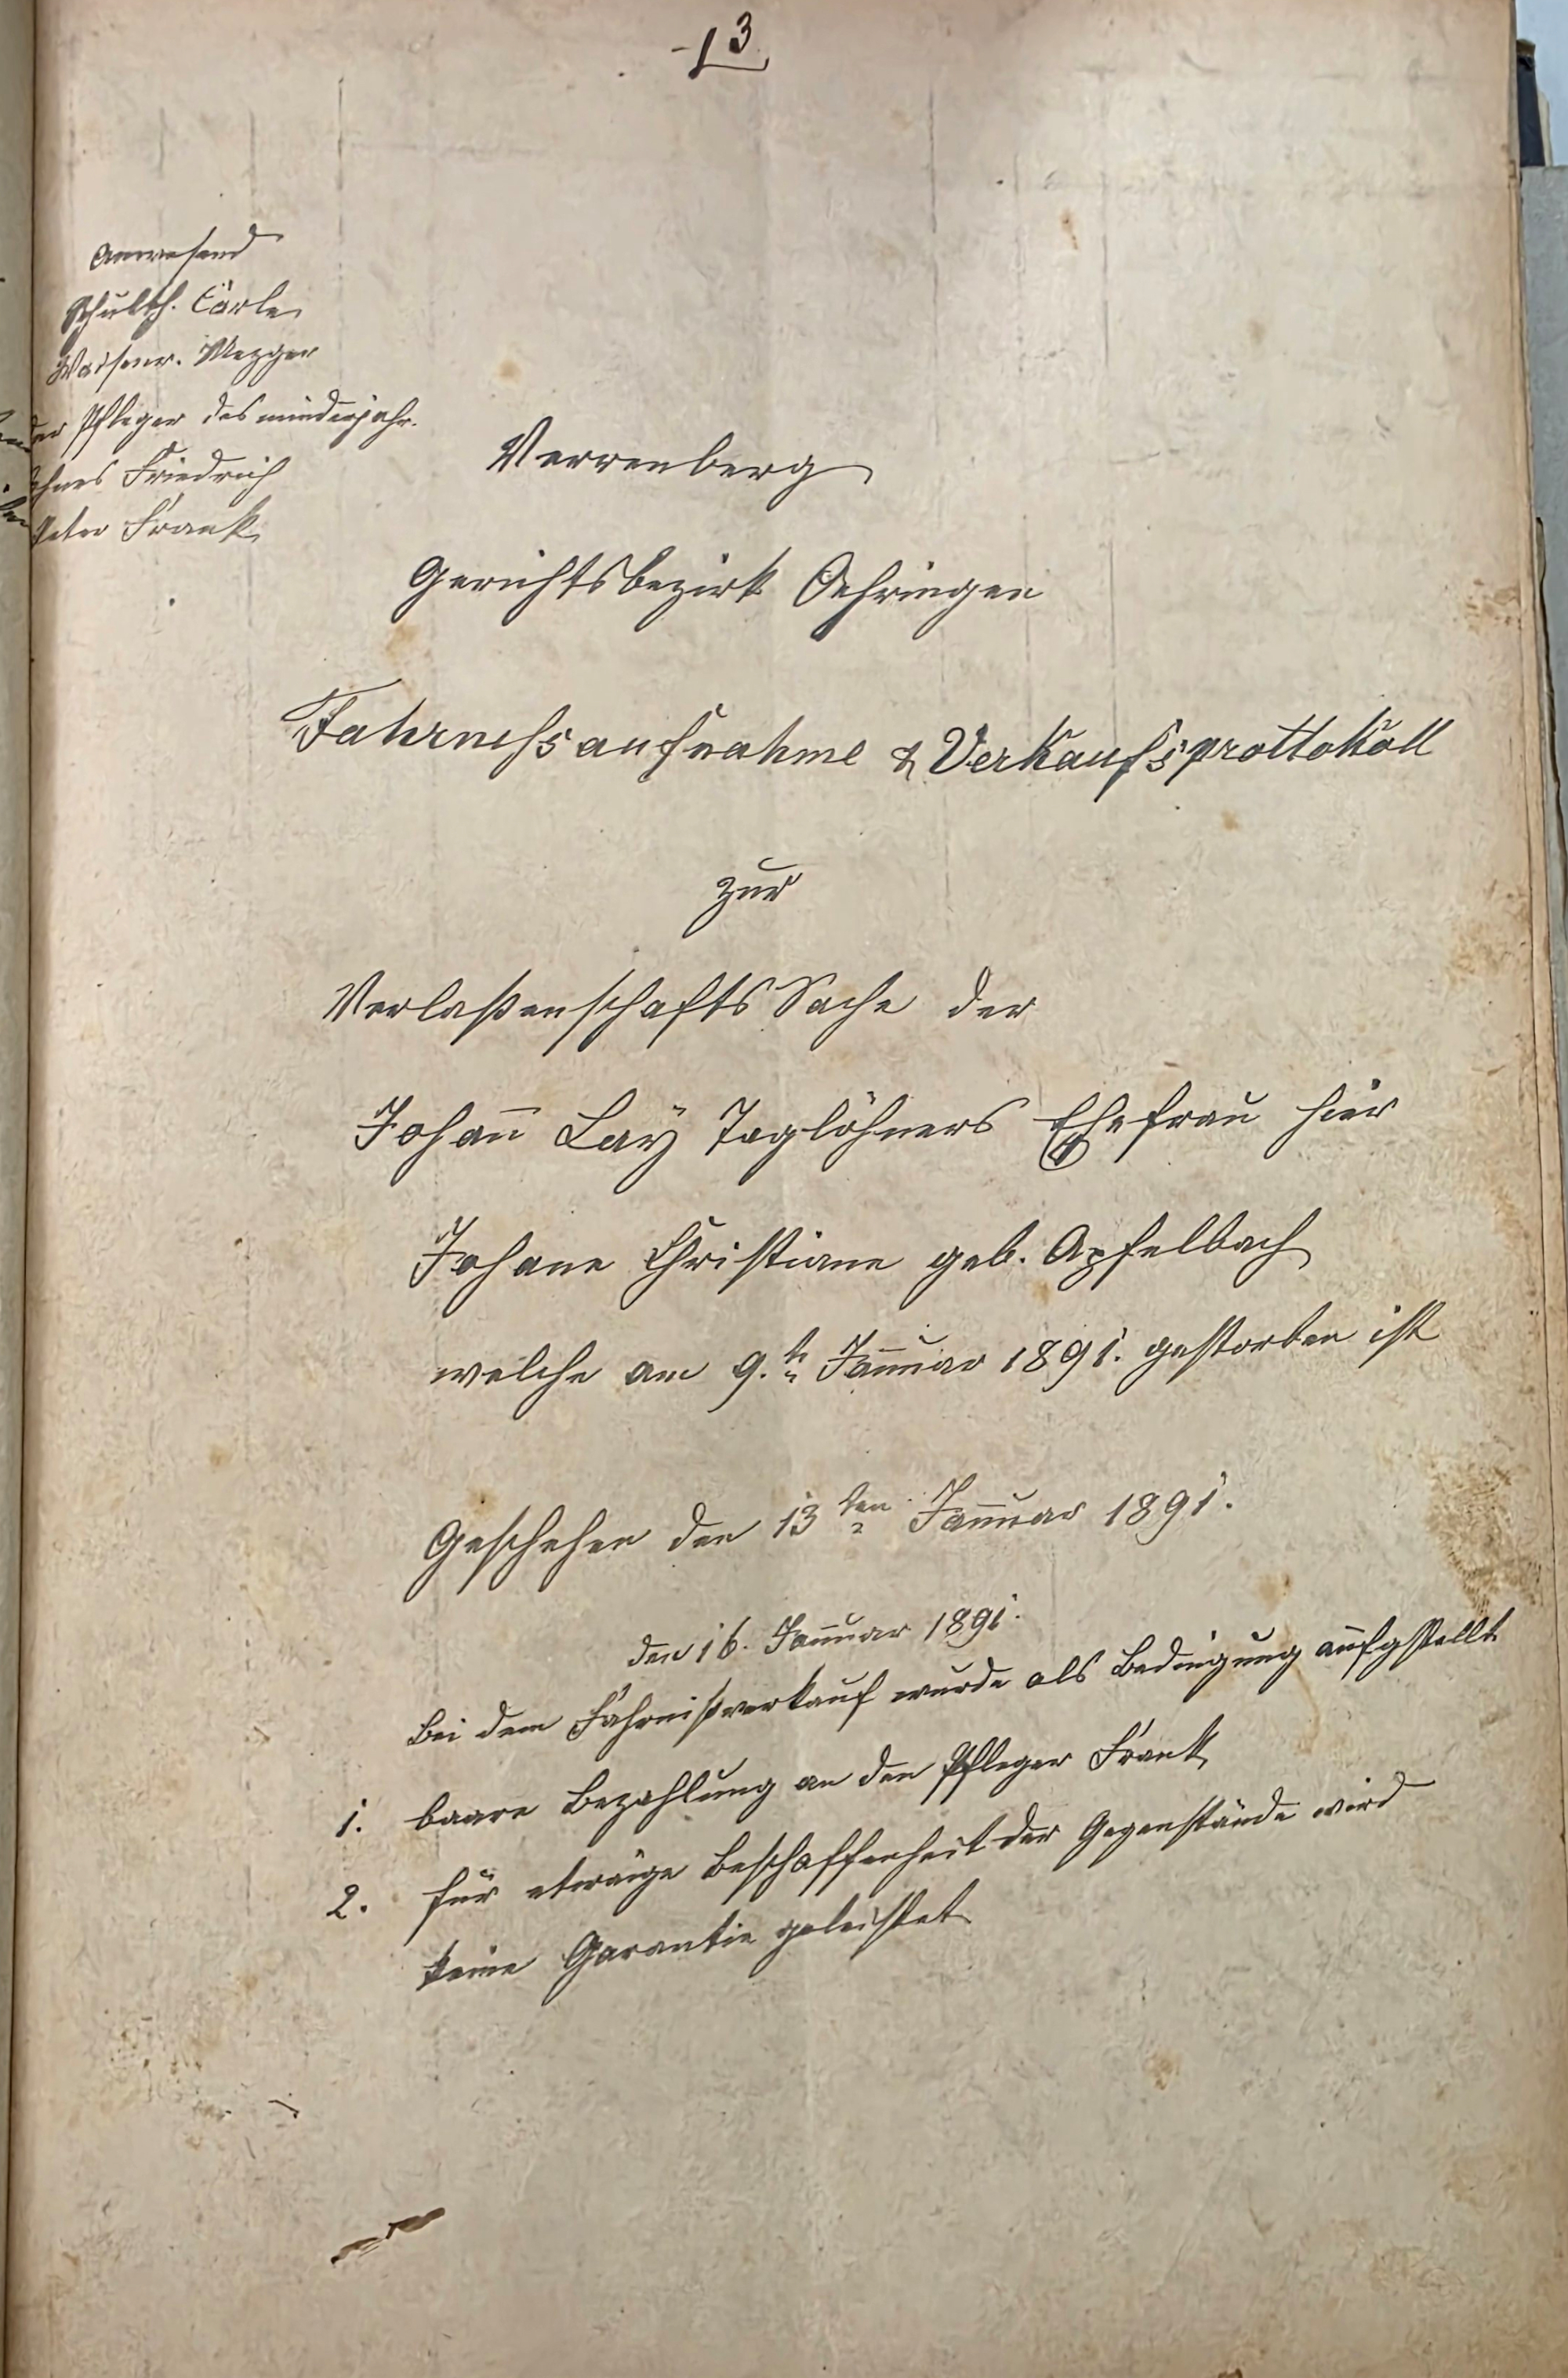 13
Anwesend
Schulth. Cärle
Waisenr. Mezger
der Pfleger des minderjahr.
ohnes Friedrich
Peter Frank
Verrenberg
Gerichtsbezirk Oehringen
Fahrnißaufnahme & Verkaufsprottokoll
zur
Verlaßenschafts Sache der
Johañ Laÿ Taglöhners Ehefrau hier
Johane Christiane geb. Apfelbach
welche am 9.t Januar 1891. gestorben ist
Geschehen den 13ten Januar 1891.
den 16. Januar 1891.
Bei dem Fahrnißverkauf wurde als Bedingung aufgstellt
1. baare Bezahlung an den Pfleger Frank
2. für etwaige Beschaffenheit der Gegenstände wird
keine Garantie geleistet